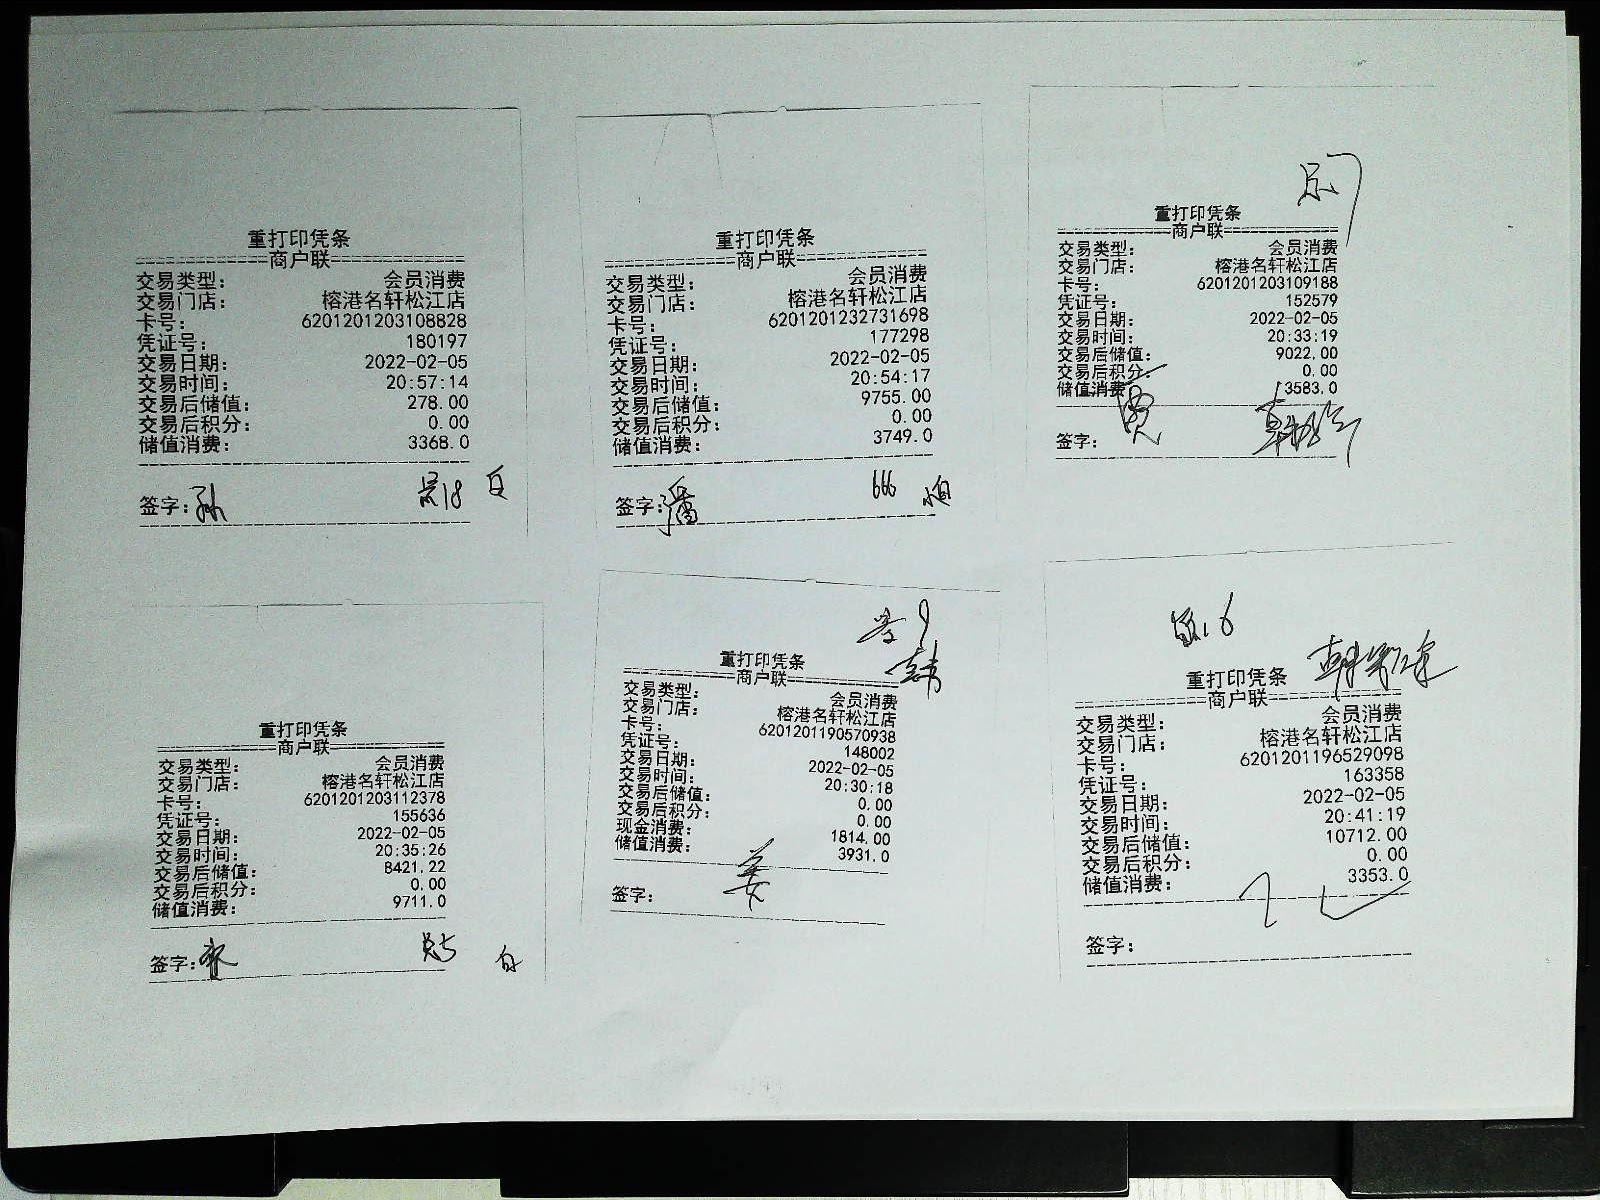 重打印凭条
商户联
交易类型: 会员消费
交易门店: 榕港名轩松江店
卡号: 6201201203108828
凭证号: 180197
交易日期: 2022-02-05
交易时间: 20:57:14
交易后储值: 278.00
交易后积分: 0.00
储值消费: 3368.0
签字: 孙
重打印凭条
商户联
交易类型: 会员消费
交易门店: 榕港名轩松江店
卡号: 6201201232731698
凭证号: 177298
交易日期: 2022-02-05
交易时间: 20:54:17
交易后储值: 9755.00
交易后积分: 0.00
储值消费: 3749.0
签字: 潘 666
重打印凭条
商户联
交易类型: 会员消费
交易门店: 榕港名轩松江店
卡号: 6201201203109188
凭证号: 152579
交易日期: 2022-02-05
交易时间: 20:33:19
交易后储值: 9022.00
交易后积分: 0.00
储值消费: 3583.0
签字: 贾
重打印凭条
商户联
交易类型: 会员消费
交易门店: 榕港名轩松江店
卡号: 6201201203112378
凭证号: 155636
交易日期: 2022-02-05
交易时间: 20:35:26
交易后储值: 8421.22
交易后积分: 0.00
储值消费: 9711.0
签字:
重打印凭条
商户联
交易类型: 会员消费
交易门店: 榕港名轩松江店
卡号: 6201201190570938
凭证号: 148002
交易日期: 2022-02-05
交易时间: 20:30:18
交易后储值: 0.00
交易后积分: 0.00
现金消费: 1814.00
储值消费: 3931.0
签字: 姜
重打印凭条
商户联
交易类型: 会员消费
交易门店: 榕港名轩松江店
卡号: 6201201196529098
凭证号: 163358
交易日期: 2022-02-05
交易时间: 20:41:19
交易后储值: 10712.00
交易后积分: 0.00
储值消费: 3353.0
签字: